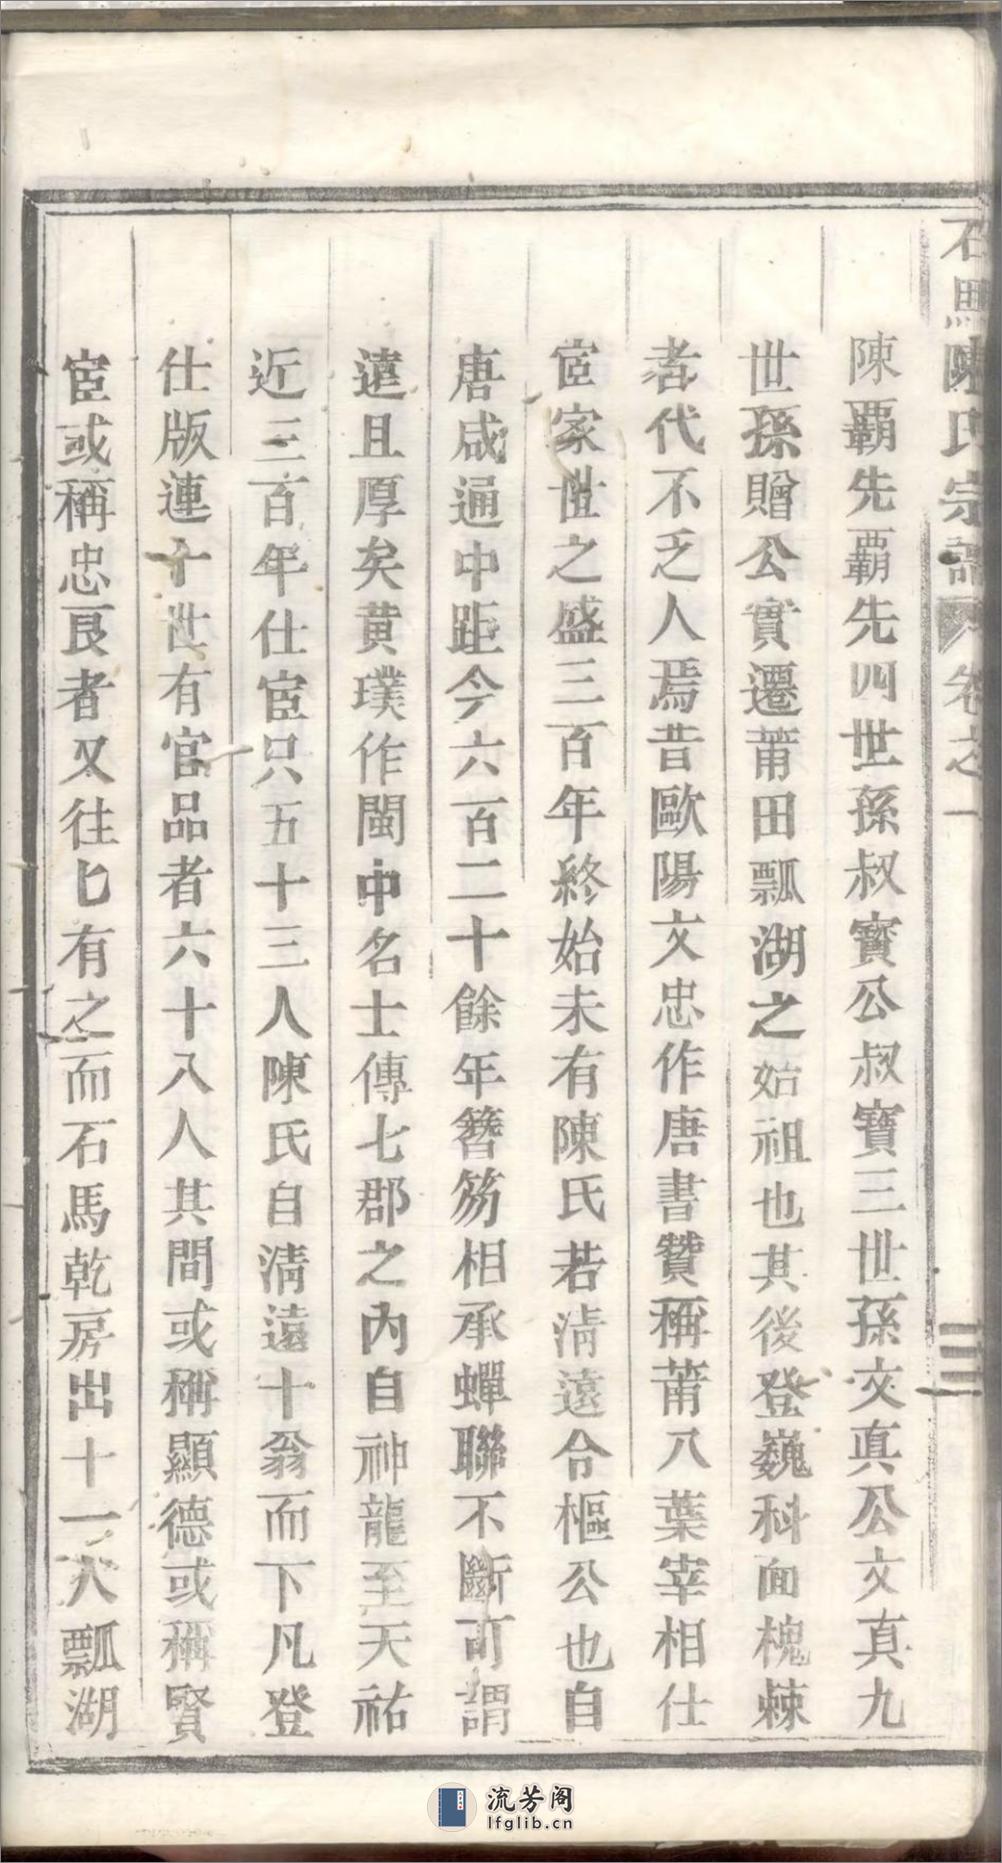 石馬陳氏宗譜 卷之一 三
陳霸先霸先四世孫叔寶公叔寶三世孫文真公文真九
世孫贈公實遷莆田瓢湖之始祖也其後登巍科面槐棘
者代不乏人焉昔歐陽文忠作唐書贊稱莆八葉宰相仕
宦家世之盛三百年終始未有陳氏若清遠令樞公也自
唐咸通中距今六百二十餘年簪笏相承蟬聯不斷可謂
遠且厚矣黄璞作閩中名士傳七郡之內自神龍至天祐
近三百年仕宦只五十三人陳氏自清遠十翁而下凡登
仕版連十世有官品者六十八人其間或稱顯德或稱賢
宦或稱忠良者又往匕有之而石馬乾房出十一人瓢湖
流芳阁
lfglib.cn